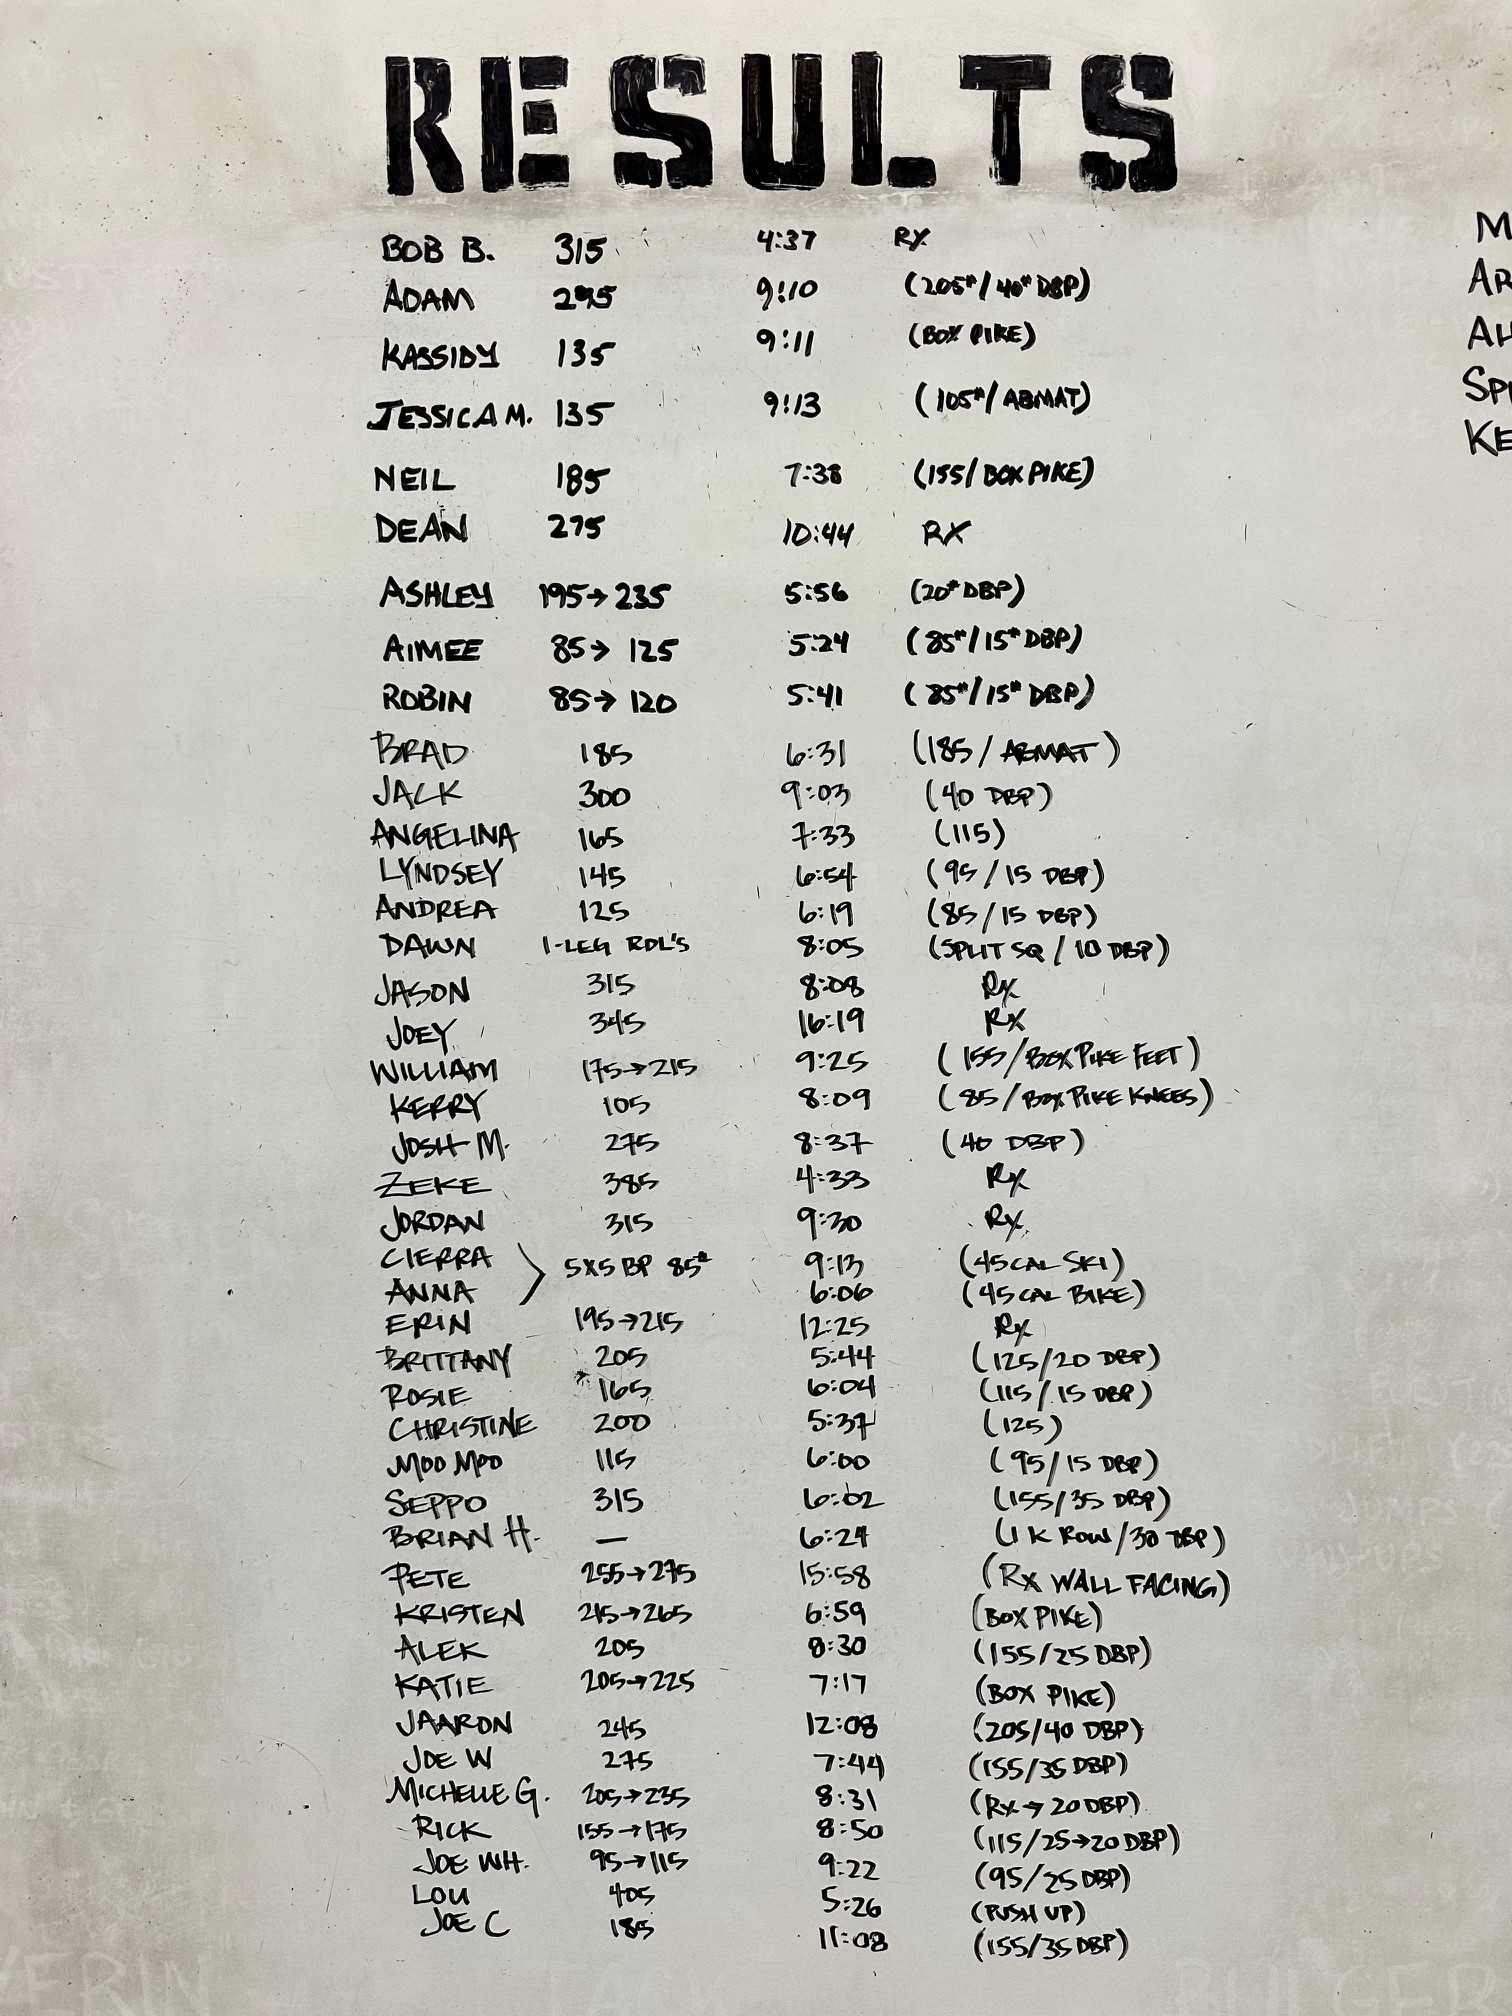 RESULTS
BOB B. 315 4:37 RX
ADAM 295 9:10 (205#/40# DBP)
KASSIDY 135 9:11 (BOX PIKE)
JESSICA M. 135 9:13 (105#/ABMAT)
NEIL 185 7:38 (155/BOX PIKE)
DEAN 275 10:44 RX
ASHLEY 195→235 5:56 (20# DBP)
AIMEE 85→125 5:24 (85#/15# DBP)
ROBIN 85→120 5:41 (85#/15# DBP)
BRAD 185 6:31 (185/ABMAT)
JACK 300 9:03 (40 DBP)
ANGELINA 165 7:33 (115)
LYNDSEY 145 6:54 (95/15 DBP)
ANDREA 125 6:19 (85/15 DBP)
DAWN 1-LEG RDL'S 8:05 (SPLIT SQ/10 DBP)
JASON 315 8:08 RX
JOEY 345 16:19 RX
WILLIAM 175→215 9:25 (155/BOX PIKE FEET)
KERRY 105 8:09 (85/BOX PIKE KNEES)
JOSH M. 275 8:37 (40 DBP)
ZEKE 385 4:33 RX
JORDAN 315 9:30 RX
CIERRA 5X5 BP 85# 9:13 (45 CAL SKI)
ANNA 6:06 (45 CAL BIKE)
ERIN 195→215 12:25 RX
BRITTANY 205 5:44 (125/20 DBP)
ROSIE 165 6:04 (115/15 DBP)
CHRISTINE 200 5:37 (125)
MOO MOO 115 6:00 (95/15 DBP)
SEPPO 315 6:02 (155/35 DBP)
BRIAN H. — 6:24 (1K ROW/30 DBP)
PETE 255→275 15:58 (RX WALL FACING)
KRISTEN 215→265 6:59 (BOX PIKE)
ALEK 205 8:30 (155/25 DBP)
KATIE 205→225 7:17 (BOX PIKE)
JAARON 245 12:08 (205/40 DBP)
JOE W 275 7:44 (155/35 DBP)
MICHELLE G. 205→235 8:31 (RX→20 DBP)
RICK 155→175 8:50 (115/25→20 DBP)
JOE WH. 95→115 9:22 (95/25 DBP)
LOU 405 5:26 (PUSH UP)
JOE C 185 11:08 (155/35 DBP)